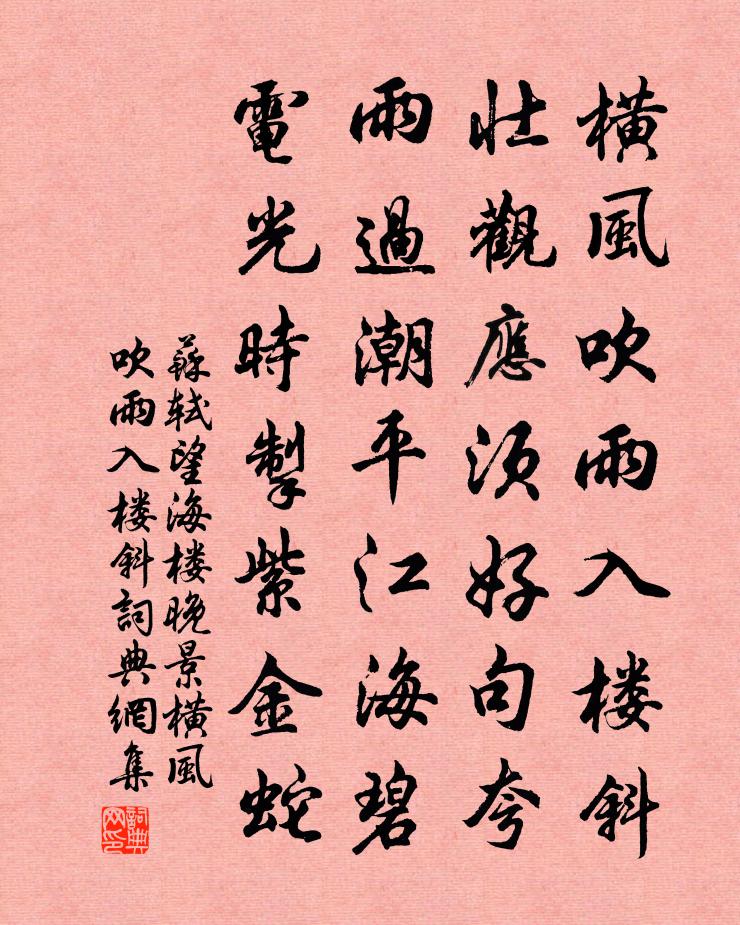 橫風吹雨入楼斜
壯觀應須好句夸
雨過潮平江海碧
電光時掣紫金蛇
蘇軾望海楼晚景橫風
吹雨入楼斜詞典網集
詞典
网印